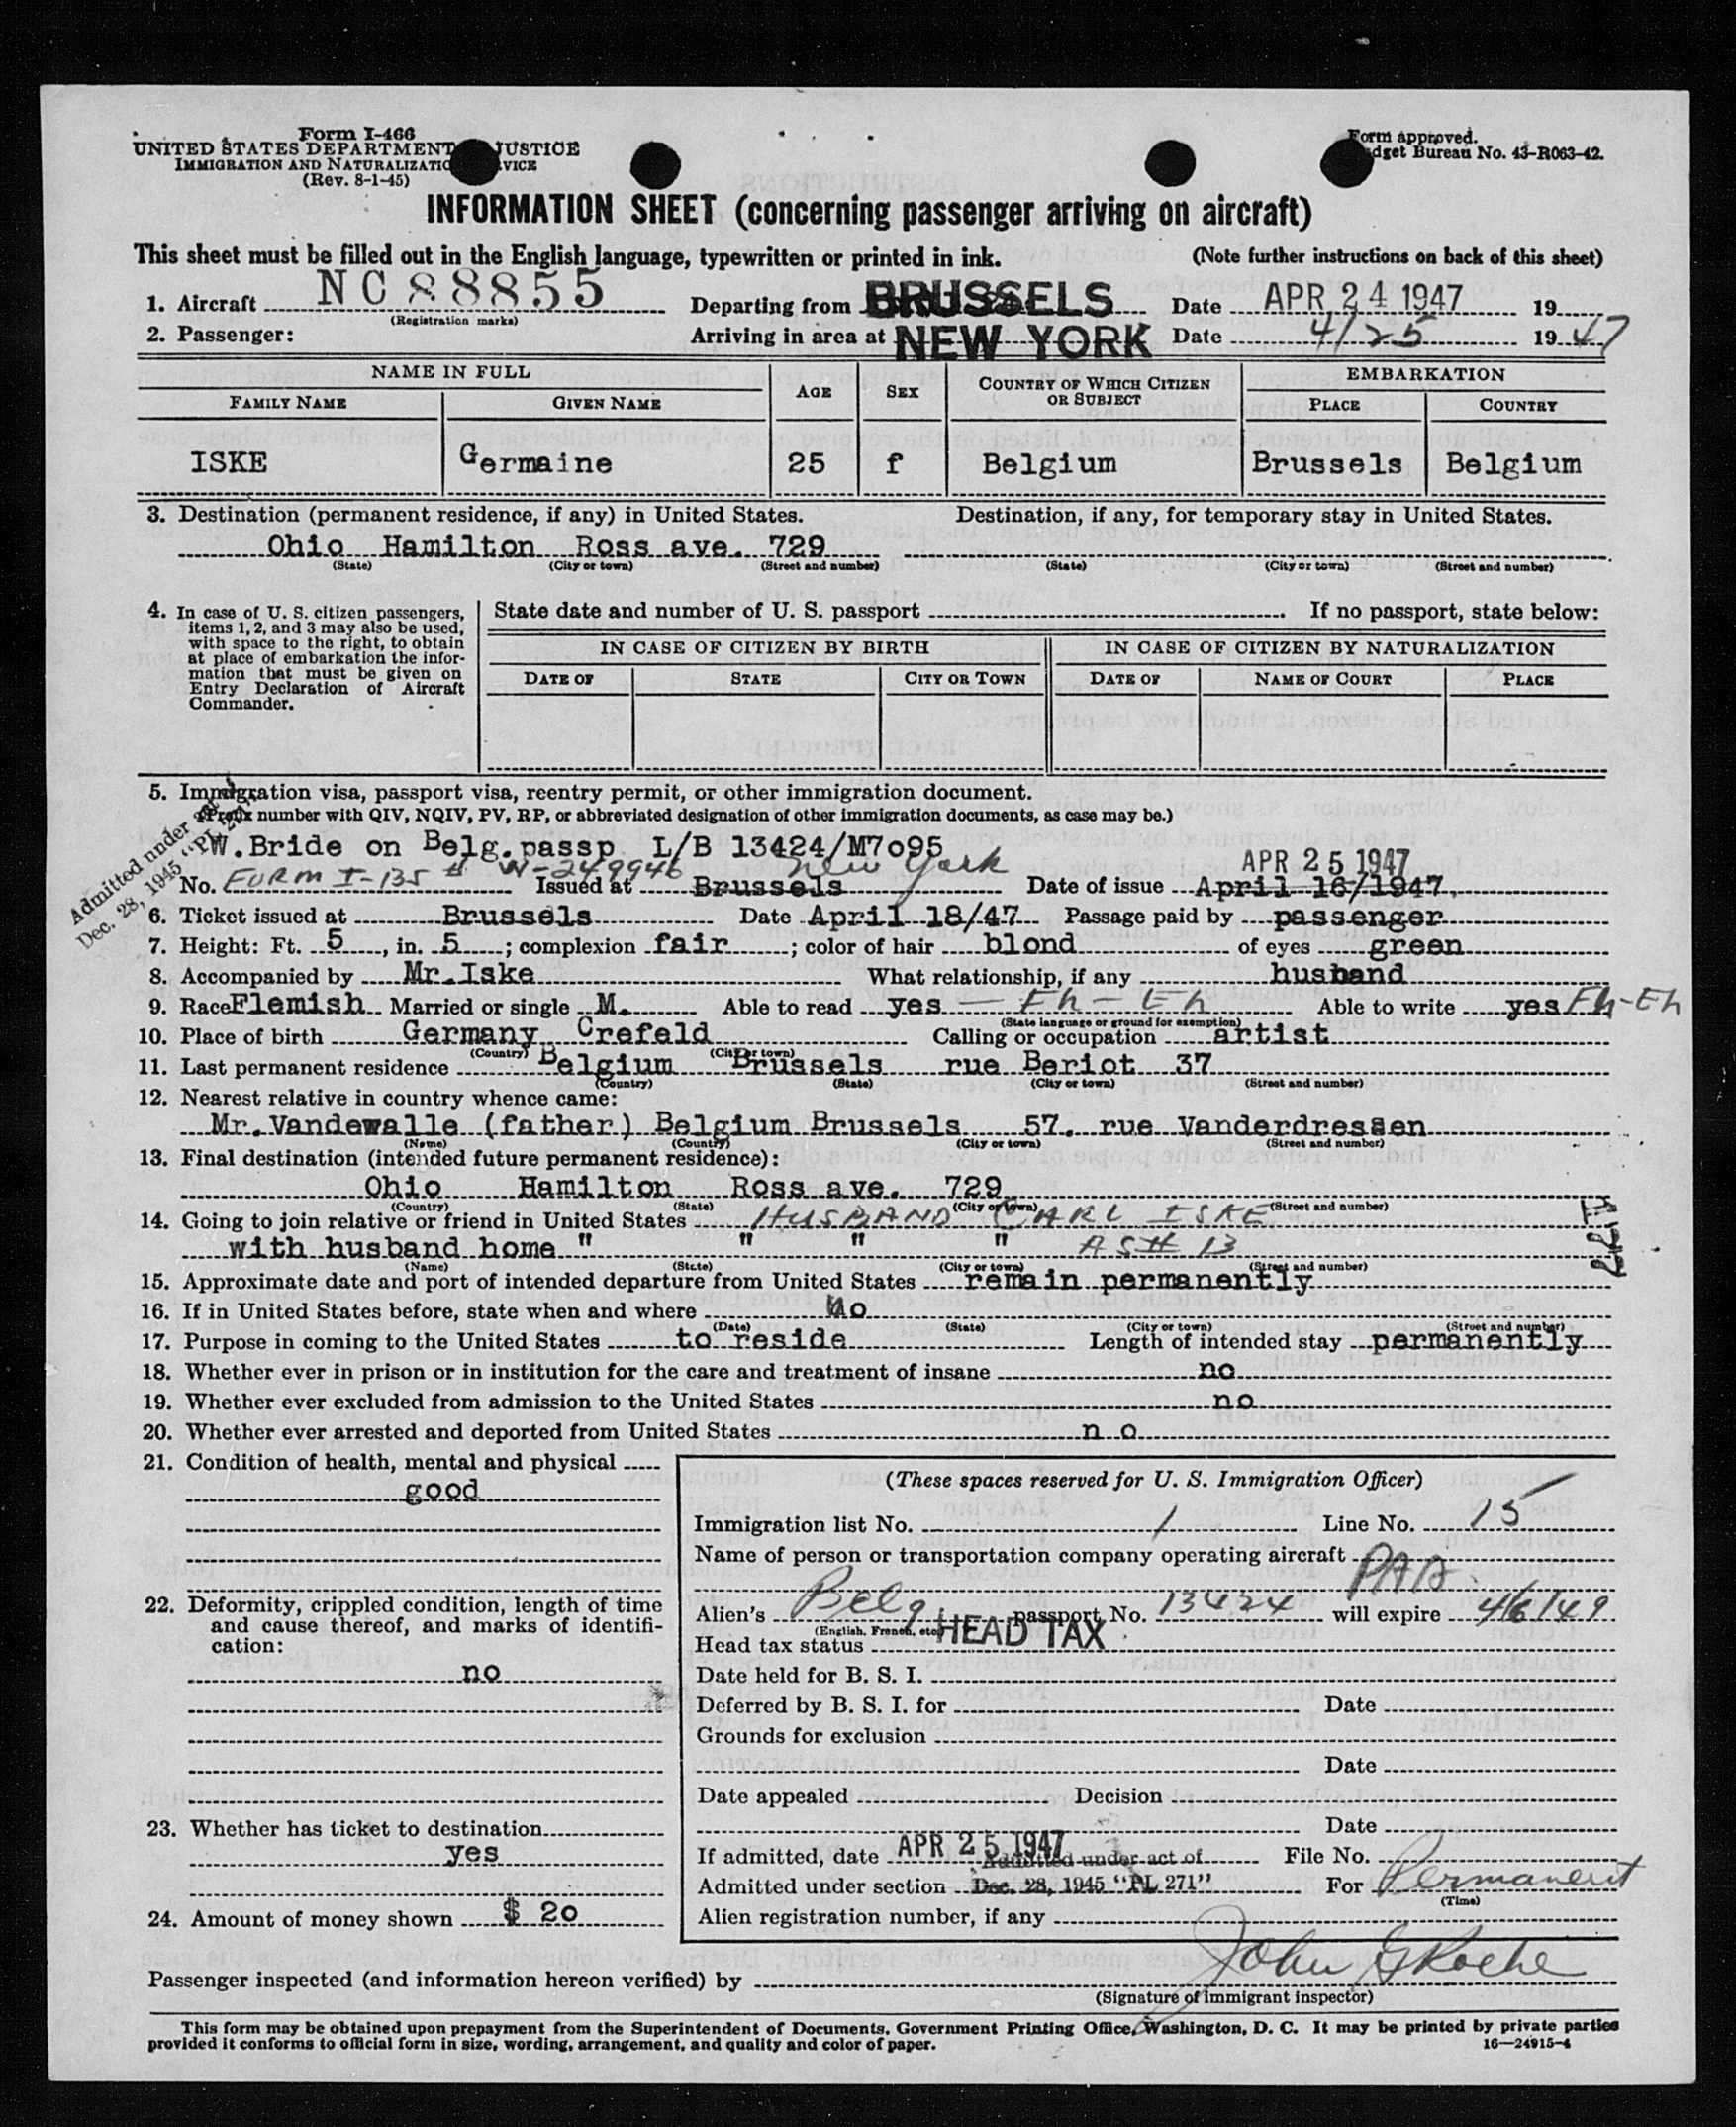 Form I-466
UNITED STATES DEPARTMENT JUSTICE
IMMIGRATION AND NATURALIZATIO VICE
(Rev. 8-1-45)
Form approved.
dget Bureau No. 43-R063-42.
INFORMATION SHEET (concerning passenger arriving on aircraft)
This sheet must be filled out in the English language, typewritten or printed in ink. (Note further instructions on back of this sheet)
1. Aircraft NC 88855 Departing from BRUSSELS Date APR 24 1947 19
(Registration marks)
2. Passenger: Arriving in area at NEW YORK Date 4/25 1947
NAME IN FULL AGE SEX COUNTRY OF WHICH CITIZEN OR SUBJECT EMBARKATION
FAMILY NAME GIVEN NAME PLACE COUNTRY
ISKE Germaine 25 f Belgium Brussels Belgium
3. Destination (permanent residence, if any) in United States. Destination, if any, for temporary stay in United States.
Ohio Hamilton Ross ave. 729
(State) (City or town) (Street and number) (State) (City or town) (Street and number)
4. In case of U. S. citizen passengers, items 1, 2, and 3 may also be used, with space to the right, to obtain at place of embarkation the information that must be given on Entry Declaration of Aircraft Commander.
State date and number of U. S. passport . If no passport, state below:
IN CASE OF CITIZEN BY BIRTH IN CASE OF CITIZEN BY NATURALIZATION
DATE OF STATE CITY OR TOWN DATE OF NAME OF COURT PLACE
5. Immigration visa, passport visa, reentry permit, or other immigration document.
(Prefix number with QIV, NQIV, PV, RP, or abbreviated designation of other immigration documents, as case may be.)
Admitted under act of
Dec. 28, 1945 "PL 271"
W.Bride on Belg.passp L/B 13424/M7095
New York APR 25 1947
No. FORM I-135 # W-249946 Issued at Brussels Date of issue April 16/1947.
6. Ticket issued at Brussels Date April 18/47 Passage paid by passenger
7. Height: Ft. 5, in. 5; complexion fair; color of hair blond of eyes green
8. Accompanied by Mr.Iske What relationship, if any husband
9. Race Flemish Married or single M. Able to read yes — Eh - Eh Able to write yes Eh-Eh
(State language or ground for exemption)
10. Place of birth Germany Crefeld Calling or occupation artist
(Country) (City or town)
11. Last permanent residence Belgium Brussels rue Beriot 37
(Country) (State) (City or town) (Street and number)
12. Nearest relative in country whence came:
Mr.Vandewalle (father) Belgium Brussels 57. rue Vanderdressen
(Name) (Country) (City or town) (Street and number)
13. Final destination (intended future permanent residence):
Ohio Hamilton Ross ave. 729
(Country) (State) (City or town) (Street and number)
14. Going to join relative or friend in United States HUSBAND CARL ISKE
with husband home " " " " AS # 13
(Name) (State) (City or town) (Street and number)
15. Approximate date and port of intended departure from United States remain permanently
16. If in United States before, state when and where no
(Date) (State) (City or town) (Street and number)
17. Purpose in coming to the United States to reside Length of intended stay permanently
18. Whether ever in prison or in institution for the care and treatment of insane no
19. Whether ever excluded from admission to the United States no
20. Whether ever arrested and deported from United States no
21. Condition of health, mental and physical
good
22. Deformity, crippled condition, length of time and cause thereof, and marks of identification:
no
23. Whether has ticket to destination
yes
24. Amount of money shown $ 20
(These spaces reserved for U. S. Immigration Officer)
Immigration list No. 1 Line No. 15
Name of person or transportation company operating aircraft PAA
Alien's Belg. passport No. 13424 will expire 4/6/49
(English, French, etc.)
Head tax status HEAD TAX
Date held for B. S. I.
Deferred by B. S. I. for Date
Grounds for exclusion
Date
Date appealed Decision
Date
If admitted, date APR 25 1947 File No.
Admitted under act of
Admitted under section Dec. 28, 1945 "PL 271" For Permanent
(Time)
Alien registration number, if any
Passenger inspected (and information hereon verified) by John G Roche
(Signature of immigrant inspector)
This form may be obtained upon prepayment from the Superintendent of Documents, Government Printing Office, Washington, D. C. It may be printed by private parties
provided it conforms to official form in size, wording, arrangement, and quality and color of paper. 16—24915-4